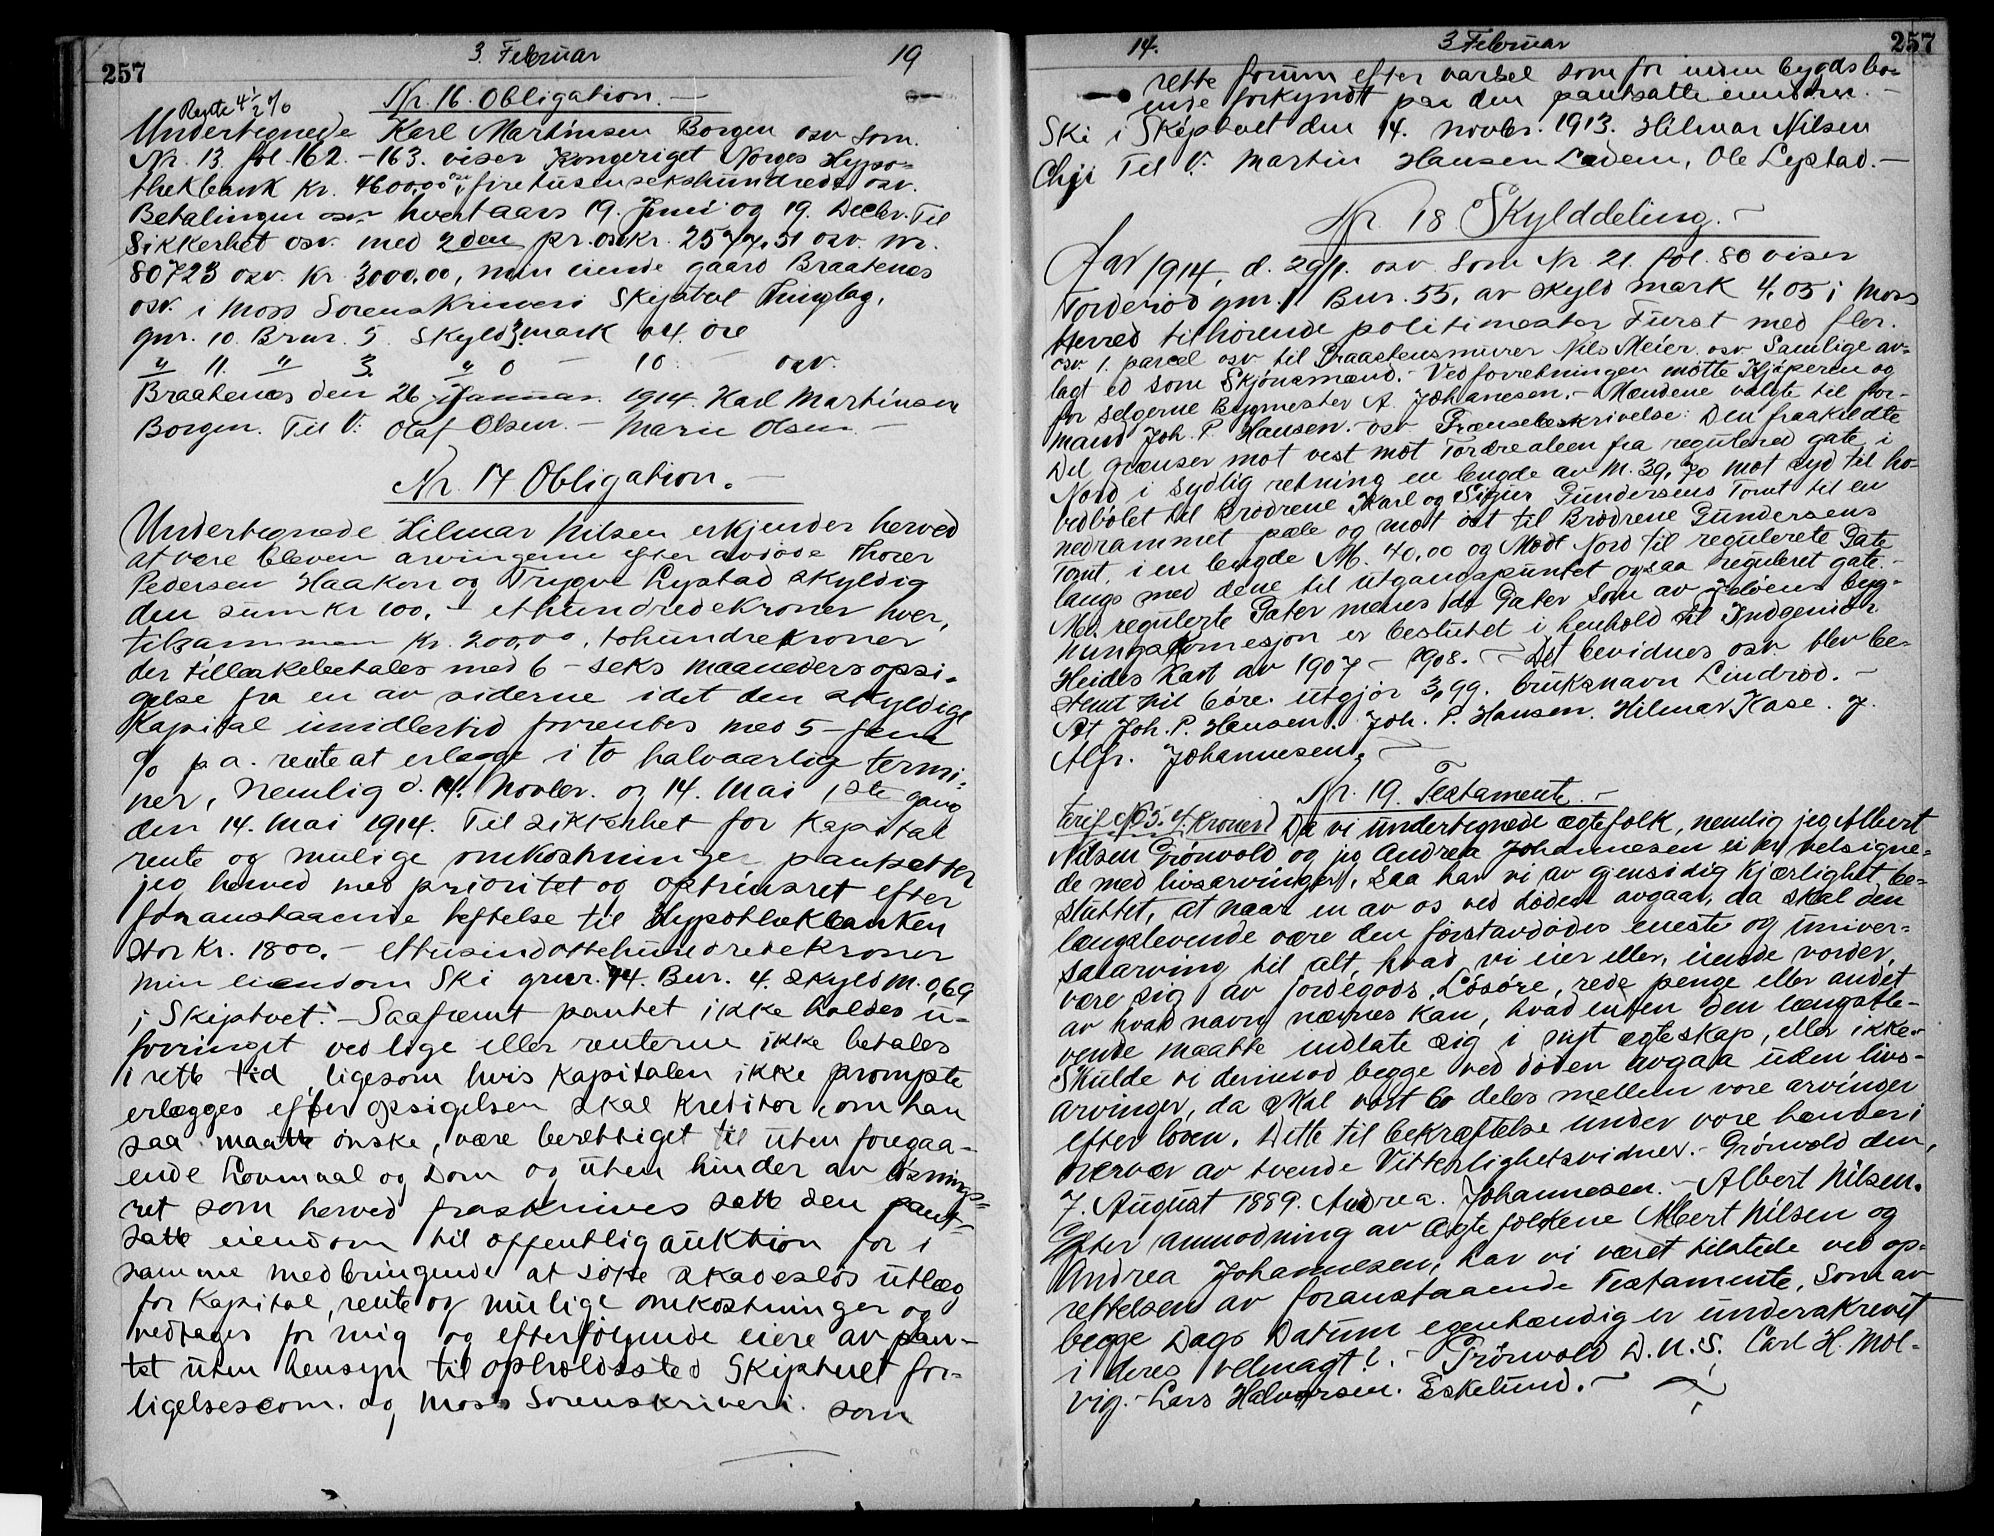 257
3. Februar 19
Rente 4 1/2 %
Nr. 16. Obligation. —
Undertegnede Karl Martinsen Borgen osv. som
Nr. 13. fol. 162. - 163. viser Kongeriget Norges Hypo=
thekbank Kr. 4600,00 firetusensekshundrede osv.
Betalingen osv hvert aars 19. Juni og 19. Decbr. Til
Sikkerhet osv. med 2den pr. osv Kr. 2577,51 osv. nr.
80723 osv. Kr. 3000,00, min eiende gaard Braatenes
osv. i Moss Sorenskriveri Skiptvet Thinglag,
gnr. 10. Brnr. 5. Skyld 3 mark 04. öre
" 11. " 3. " 0 — 10 — osv.
Braatenes den 26 Januar. 1914. Karl Martinsen
Borgen. Til V: Olaf Olsen. — Marie Olsen —
Nr. 17 Obligation. —
Undertegnede Hilmar Nilsen erkjender herved
at være bleven arvingerne efter avdöde Thorer
Pedersen Haakon og Trygve Lystad skyldig
den sum Kr 100. - ethundredekroner hver,
tilsammen Kr. 200,00, tohundrekroner
der tilbakebetales med 6 - seks maaneders opsi-
gelse fra en av siderne idet den skyldige
Kapital imidlertid forrentes med 5 - fem
% p a. rente at erlægge i to halvaarlig termi-
ner, nemlig d. 14. Novbr. og 14. Mai 1ste gang
den 14. Mai 1914. Til sikkerhet for Kapital
rente og mulige omkostninger pantsetter
jeg herved med prioritet og optrinsret efter
foranstaaende heftelse til Hypothekbanken
stor Kr. 1800. - ettusindottehundredekroner
min eiendom Ski gnr. 44. Bnr. 4. skyld M. 0,69
i Skiptvet. - Saafremt pantet ikke holdes u-
forringet vedlige eller renterne ikke betales
i rette tid, ligesom hvis Kapitalen ikke prompte
erlægges efter opsigelsen skal Kreditor, om han
saa maatte önske, være berettiget til uten foregaa-
ende Lovmaal og Dom og uten hinder av lösnings=
ret som herved fraskrives sette den pant-
satte eiendom til offentlig auktion for i
samme medbringende at söke skadeslös utlæg
for Kapital, rente og mulige omkostninger og
vedtages for mig og efterfölgende eiere av pan-
tet uten hensyn til opholdssted Skiptvet for-
ligelsescom. og Moss Sorenskriveri. som
14. 3 Februar 257
rette forum efter varsel som for inden bygds bo-
ende forkyndt paa den pantsatte eiendom. -
Ski i Skiptvet den 14. novbr. 1913. Hilmar Nilsen
Til V: Martin Hansen Ladem, Ole Lystad. —
Nr. 18 Skylddeling. —
Aar 1914, d. 29/1. osv. som Nr. 21. fol. 80 viser
Torderöd gnr. 1 Bnr. 55, av skyld mark 4,05 i Moss
Herred tilhörende politimester Furst med fler.
osv. 1. parcel osv til Graastensmurer Nils Meier osv Samlige av-
lagt ed som Skjönsmænd. - Ved forretningen mötte Kjöperen og
for selgerne Bygmester A. Johanesen. - Mændene valgte til for-
mand Joh. P. Hansen. - osv Grænsebeskrivelse: Den fraskildte
Del grænser mot vest mot Tordrealeen fra reguleret gate i
Nord i sydlig retning en længde av M. 39,70 mot syd til ho-
vedbölet til Brödrene Karl og Sigur Gundersens Tomt til en
nedrammet pæle og mot öst til Brödrene Gundersens
Tomt, i en længde M. 40,00 og Modt Nord til regulerte Gate
langs med dene til utgangspuntet ogsaa reguleret gate. -
Md. regulerte Gater menes de Gater som av Jelöens byg-
ningskomesjon er beslutet i henhold til Indgeniör
Heides Kart av 1907 - 1908. — Det bevidnes osv blev be-
stemt til 6öre. utgjör 3,99. bruksnavn Lindröd. -
At Joh. P. Hansen. Joh. P. Hansen. Hilmar Kase. J.
Alfr. Johannesen. —
Nr. 19. Testamente. —
Tarif No 5. 4 Kroner Da vi undertegnede ægtefolk, nemlig jeg Albert
Nilsen Grönvold og jeg Andrea Johannesen ei er velsigne=
de med livsarvinger, saa har vi av gjensidig Kjærlighet be=
sluttet, at naar en av os ved döden avgaar, da skal den
længstlevende være den förstavdödes eneste og univer=
salarving til alt, hvad vi eier eller eiende vorder,
være sig av jordegods, Lösöre, rede penge eller andet
av hvad navn nævnes kan, hvad enten den længstle-
vende maatte indlate sig i nyt ægteskap, eller ikke.
Skulde vi derimod begge ved döden avgaa uden livs-
arvinger, da skal vort bo deles mellem vore arvinger
efter loven. Dette til bekræftelse under vore hænder i
nærvær av tvende Vitterlighetsvidner. - Grönvold den,
7. August 1889. Andrea. Johannesen. - Albert Nilsen.
Efter anmodning av ægtefolkene Albert Nilsen og
Andrea Johannesen, har vi været tilstede ved op-
rettelsen av foranstaaende Testamente, som av
begge Dags Datum egenhændig er underskrevet
i deres velmagt!. - Grönvold D. u. S. Carl H. Mol-
vig. - Lars Halvorsen. Eskelund. —